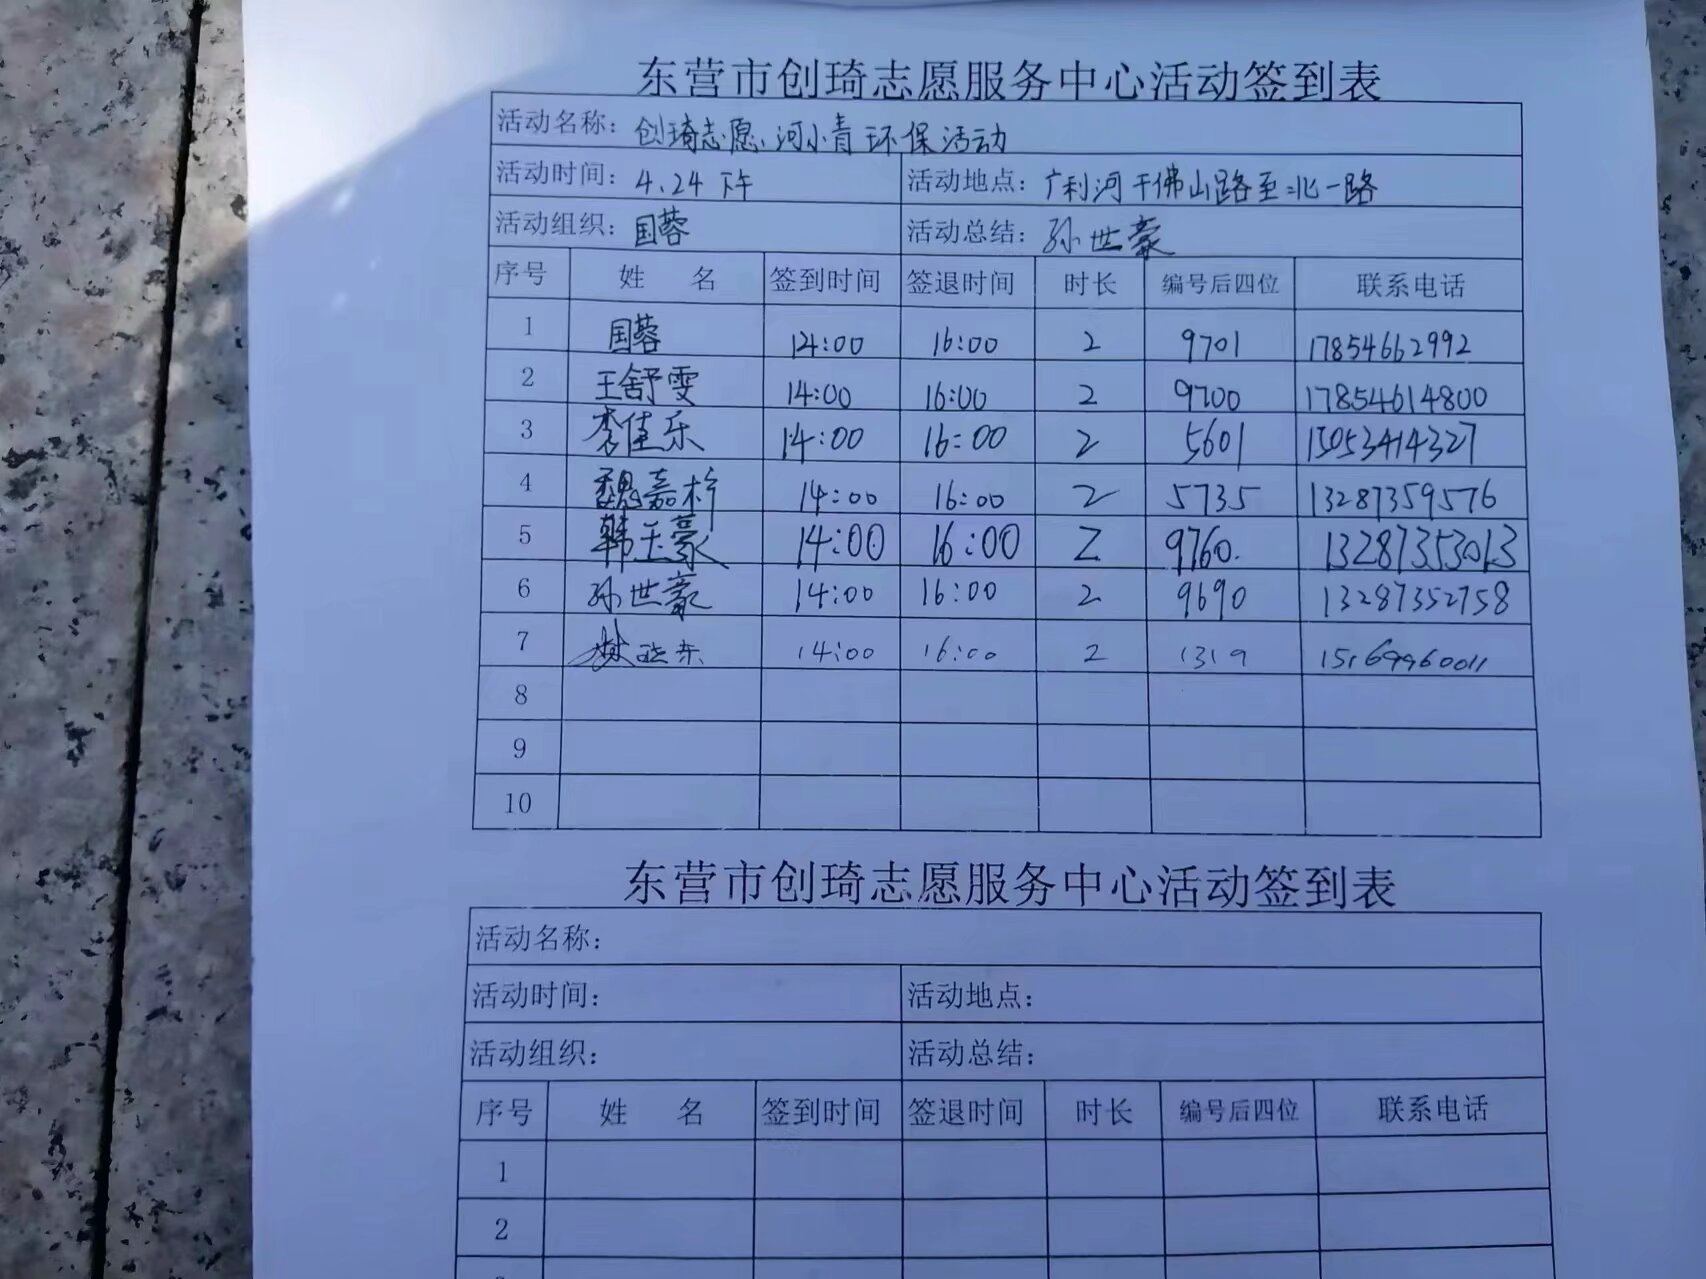 东营市创琦志愿服务中心活动签到表
活动名称：创琦志愿、河小青环保活动
活动时间：4.24下午 活动地点：广利河千佛山路至北一路
活动组织：国蓉 活动总结：孙世豪
序号 姓 名 签到时间 签退时间 时长 编号后四位 联系电话
1 国蓉 14:00 16:00 2 9701 17854662992
2 王舒雯 14:00 16:00 2 9700 17854614800
3 李佳乐 14:00 16:00 2 5601 15053414327
4 魏嘉梓 14:00 16:00 2 5735 13287359576
5 韩玉豪 14:00 16:00 2 9760. 13287353013
6 孙世豪 14:00 16:00 2 9690 13287352758
7 14:00 16:00 2 1319 15169960011
8
9
10
东营市创琦志愿服务中心活动签到表
活动名称：
活动时间： 活动地点：
活动组织： 活动总结：
序号 姓 名 签到时间 签退时间 时长 编号后四位 联系电话
1
2